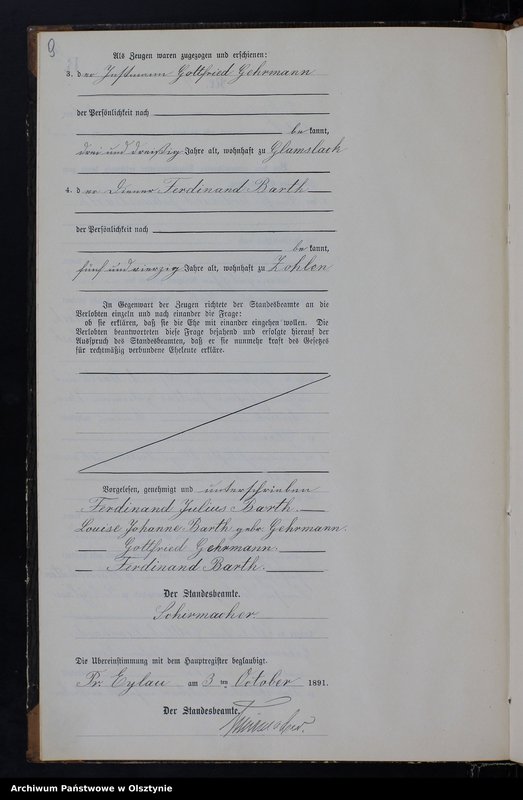 9
Als Zeugen waren zugezogen und erschienen:
3. der Instmann Gottfried Gehrmann
der Persönlichkeit nach
be kannt,
drei und dreißig Jahre alt, wohnhaft zu Glamslack
4. der Diener Ferdinand Barth
der Persönlichkeit nach
be kannt,
fünf und vierzig Jahre alt, wohnhaft zu Zohlen
In Gegenwart der Zeugen richtete der Standesbeamte an die
Verlobten einzeln und nach einander die Frage:
ob sie erklären, daß sie die Ehe mit einander eingehen wollen. Die
Verlobten beantworteten diese Frage bejahend und erfolgte hierauf der
Ausspruch des Standesbeamten, daß er sie nunmehr kraft des Gesetzes
für rechtmäßig verbundene Eheleute erkläre.
Vorgelesen, genehmigt und unterschrieben
Ferdinand Julius Barth.
Louise Johanne Barth gebr. Gehrmann.
Gottfried Gehrmann.
Ferdinand Barth.
Der Standesbeamte.
Schirmacher.
Die Übereinstimmung mit dem Hauptregister beglaubigt.
Pr. Eylau am 3 ten October 1891.
Der Standesbeamte.
Schirmacher.
Archiwum Państwowe w Olsztynie